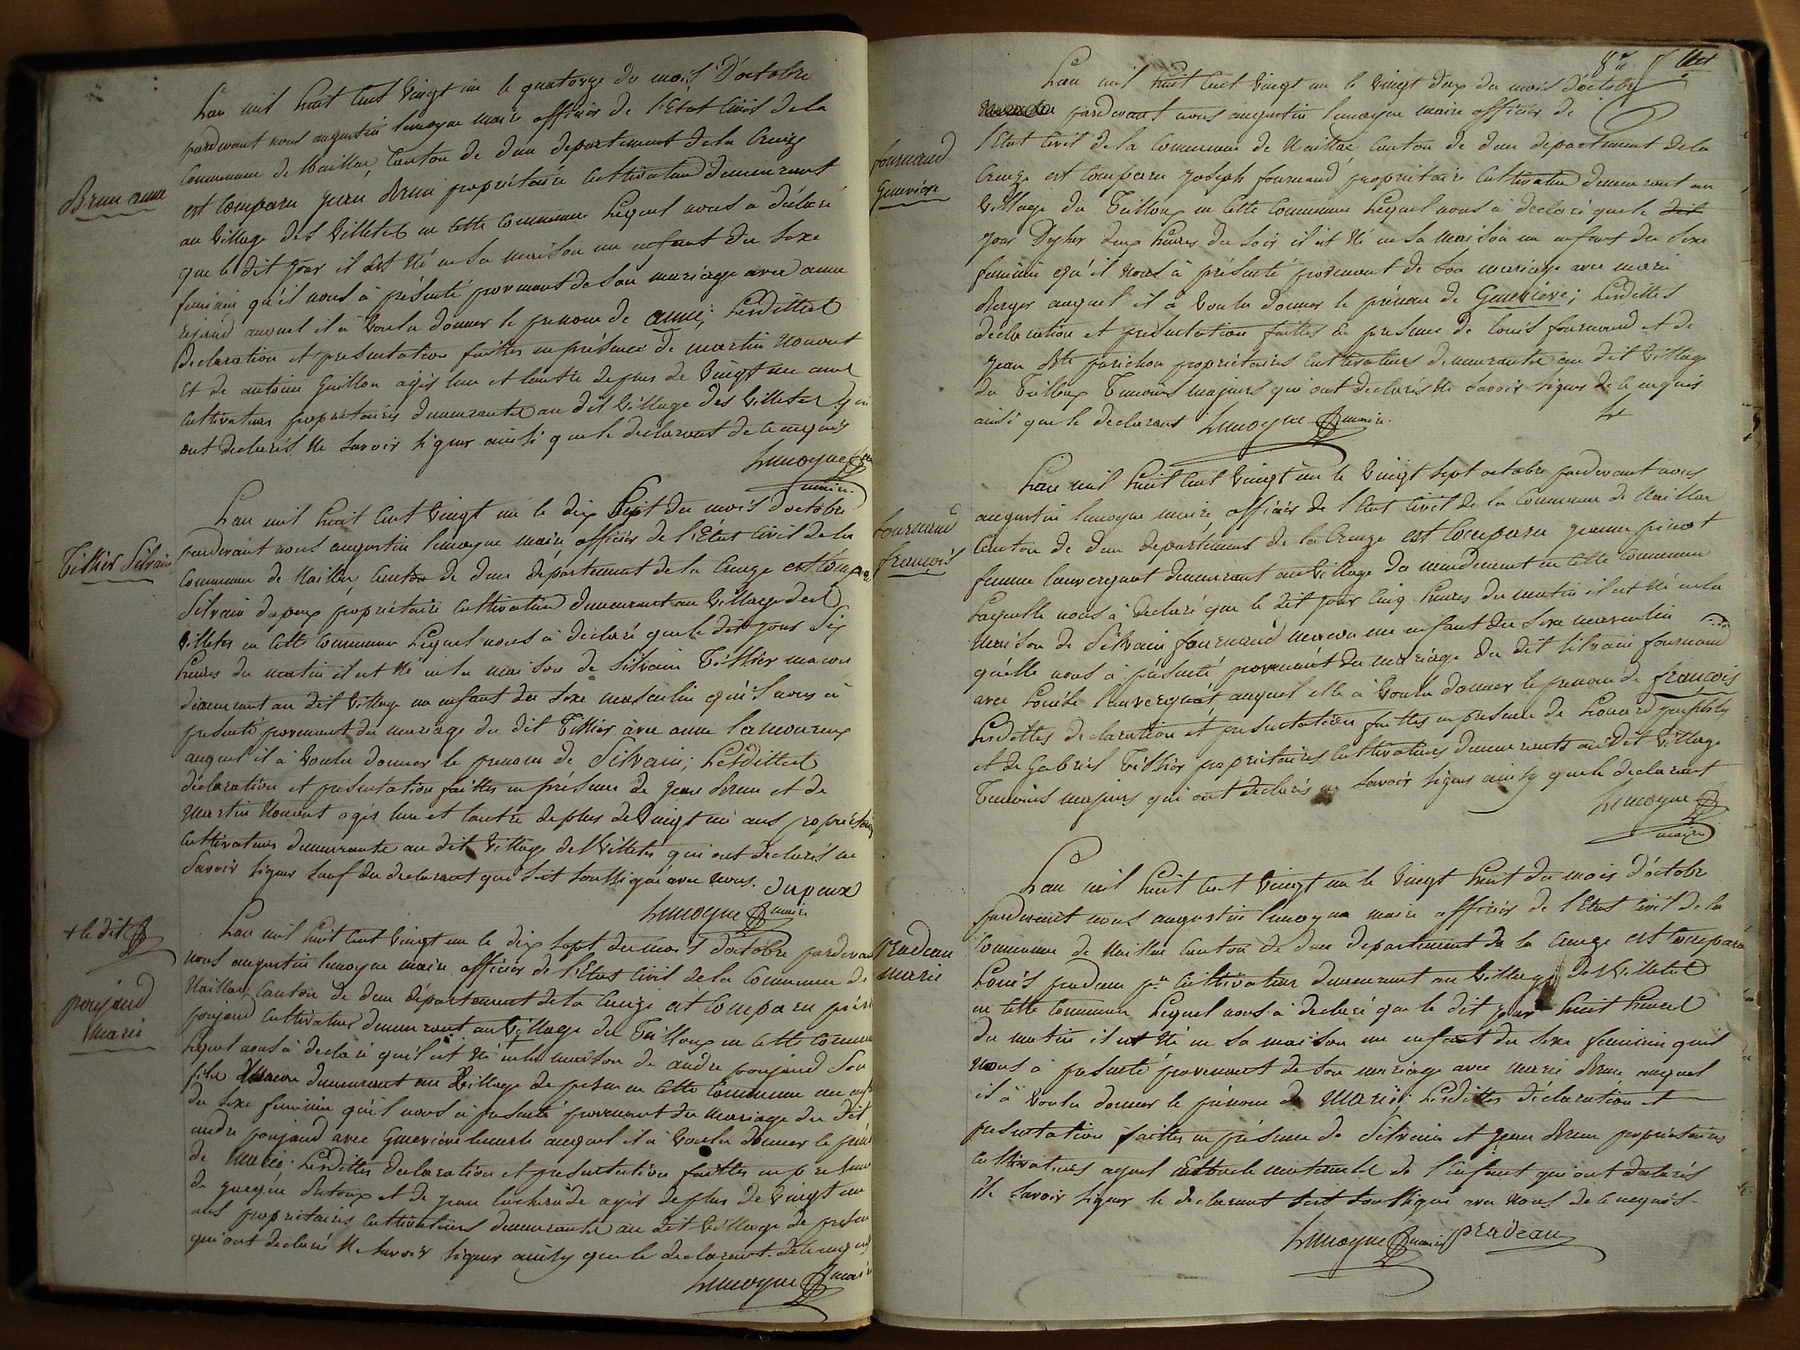 Brun anne
Lan mil huit cent vingt un le quatorze du mois D'octobre
pardevant nous augustin lemoyne maire officier de l'Etat Civil de la
Commune de Naillac, Canton de dun departement de la Creuze
est comparu jean Brun propriétaire Cultivateur demeurant
au village des Villetes en cette Commune Lequel nous a déclaré
que le dit jour il est Né en Sa maison un enfant du Sexe
feminin qu'il nous à présenté provenant de Son mariage avec anne
auquel il à voulu donner le prenom de anne; Lesdittes
Declaration et presentation faittes en présence de martin
Et de antoine Guillon agés lun et lautre de plus de vingt un ans
Cultivateurs propriétaires demeurants au dit village des Villetes qui
ont declarés Ne Savoir signer ainsi que le declarant de ce enquis
Lemoyne maire
Tissier Silvain
Lan mil huit Cent vingt un le dix Sept du mois d'octobre
pardevant nous augustin lemoyne maire officier de l'Etat Civil de la
Commune de Naillac, Canton de dun departement de la Creuze est
Silvain dupeux propriétaire Cultivateur demeurant au village des
Villetes en cette Commune Lequel nous à déclaré que le dit jour Six
heures du matin il est Né en la maison de Silvain Tissier macon
demeurant au dit village un enfant du Sexe masculin qu'il nous à
presenté provenant du mariage du dit Tissier avec anne lamoureux
auquel il à voulu donner le prenom de Silvain; Lesdittes
déclaration et présentation faittes en présence de jean Brun et de
martin agés lun et lautre de plus de vingt un ans
Cultivateurs demeurants au dit village des Villetes qui ont declarés ne
Savoir signer Sauf du declarant qui s'est Soussigné avec nous. dupeux
Lemoyne maire
+ le dit
poujaud
marie
Lan mil huit cent vingt un le dix Sept du mois d'octobre
nous augustin lemoyne maire officier de l'Etat Civil de la Commune de
Naillac, Canton de dun département de la Creuze est comparu
poujaud Cultivateur demeurant au village du en cette
Lequel nous à déclaré qu'il est Né en la maison de andre poujaud Son
fils macon demeurant au village de en cette Commune un
du Sexe feminin qu'il nous à présenté provenant du mariage du dit
andre poujaud avec Geneviève auquel il à voulu donner le
de marie. Lesdittes declaration et présentation faittes en
de et de jean agés de plus de vingt un
ans propriétaires Cultivateurs demeurants au dit village de
qui ont déclaré Ne Savoir Signer ainsy que le declarant.
Lemoyne
fournaud
Geneviève
Lan mil huit Cent vingt un le vingt deux du mois d'octobre
pardevant nous augustin lemoyne maire officier de
l'Etat Civil de la Commune de Naillac Canton de dun département de la
Creuze est comparu joseph fournaud propriétaire Cultivateur demeurant au
village du en cette Commune Lequel nous à declaré que le
jour D'yher deux heures du Soir il est Né en Sa maison un enfant du Sexe
feminin qu'il nous à présenté provenant de Son mariage avec marie
Berger auquel il à voulu donner le prénom de Geneviève; Lesdittes
declaration et présentation faittes en presence de louis fournaud et de
jean Bte parichon propriétaires Cultivateurs demeurants au dit village
du Temoins majeurs qui ont declarés Ne Savoir signer de ce enquis
ainsi que le declarant Lemoyne maire.
fournaud
françois
Lan mil huit Cent vingt un le vingt Sept octobre pardevant nous
augustin lemoyne maire officier de l'Etat Civil de la Commune de Naillac
Canton de dun departement de la Creuze est comparu jeanne
femme lauvergnat demeurant au village du en cette Commune
Laquelle nous à declaré que le dit jour Cinq heures du matin il est Né en la
maison de Silvain fournaud macon un enfant du Sexe masculin
qu'elle nous à présenté provenant du mariage du dit Silvain fournaud
avec Louise lauvergnat auquel elle à voulu donner le prenom de françois
Lesdittes declaration et présentation faittes en présence de Léonard
et de Gabriel Tissier propriétaires Cultivateurs demeurants au dit village
Temoins majeurs qui ont declarés ne Savoir signer ainsy que le declarant
Lemoyne
maire
Pradeau
marie
Lan mil huit Cent vingt un le vingt huit du mois d'octobre
pardevant nous augustin lemoyne maire officier de l'Etat Civil de la
Commune de Naillac Canton de dun departement de la Creuze est comparu
Louis pradeau pre Cultivateur demeurant au village des Villetes
en cette Commune Lequel nous à declaré que le dit jour huit heures
du matin il est Né en Sa maison un enfant du Sexe feminin quil
nous à présenté provenant de Son mariage avec marie Brun auquel
il à voulu donner le prénom de Marie; Lesdittes déclaration et
présentation faittes en présence de Silvain et jean Brun propriétaires
Cultivateurs ayeul et oncle maternels de l'enfant qui ont declarés
Ne Savoir Signer le declarant s'est Soussigné avec nous de ce enquis.
Lemoyne maire pradeau